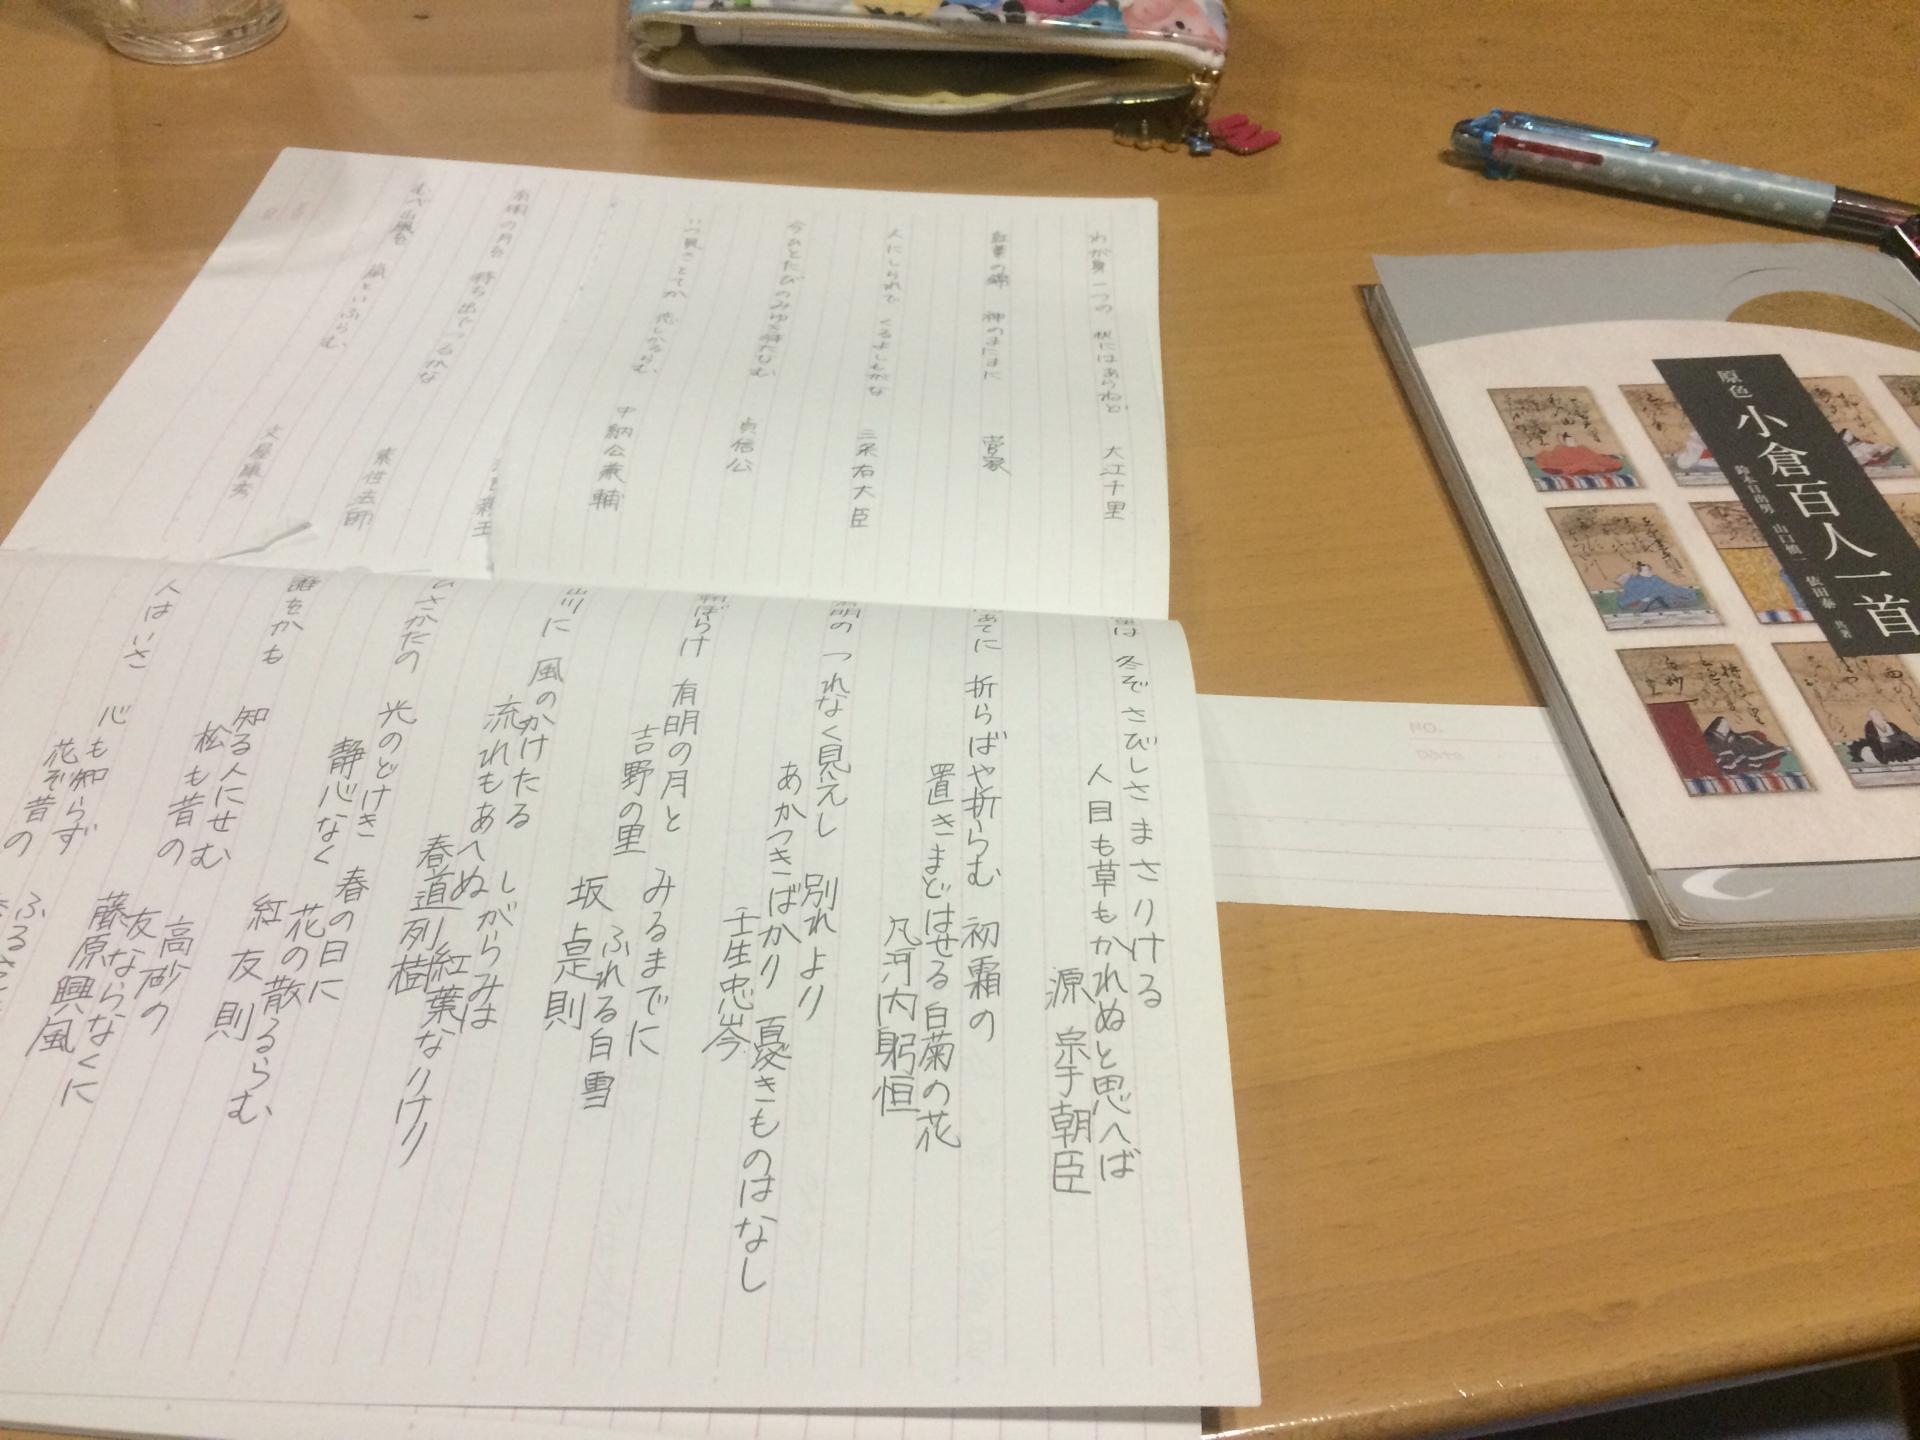 わが身一つの 秋にはあらねど 大江千里
紅葉の錦 神のまにまに 菅家
人にしられで くるよしもがな 三条右大臣
今ひとたびのみゆき待たなむ 貞信公
いつ見きとてか 恋しかるらむ 中納公兼輔
有明の月を 待ち出でつるかな 素性法師
むべ山風を 嵐といふらむ 文屋康秀
親王
は 冬ぞ さびしさまさりける
人目も草もかれぬと思へば
源 宗于朝臣
あてに 折らばや折らむ 初霜の
置きまどはせる 白菊の花
凡河内躬恒
明の つれなく見えし 別れより
あかつきばかり 憂きものはなし
壬生忠岑
ぼらけ 有明の月と みるまでに
吉野の里 ふれる白雪
坂上是則
山川に 風のかけたる しがらみは
流れもあへぬ 紅葉なりけり
春道列樹
ひさかたの 光のどけき 春の日に
静心なく 花の散るらむ
紅友則
誰をかも 知る人にせむ 高砂の
松も昔の 友ならなくに
藤原興風
人は いさ 心も知らず ふるさとは
花ぞ昔の
NO.
Date
原色
小倉百人一首
鈴木日出男 山口慎一 依田泰 共著